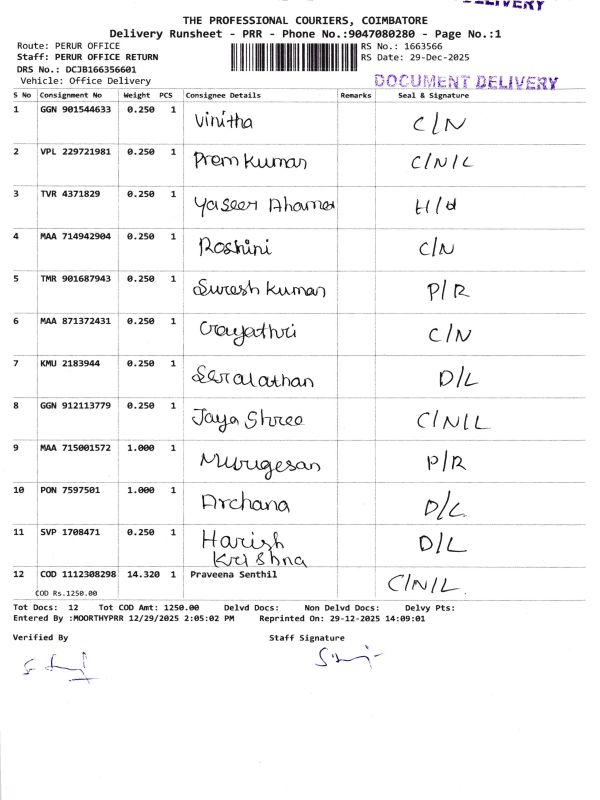 DELIVERY
THE PROFESSIONAL COURIERS, COIMBATORE
Delivery Runsheet - PRR - Phone No.:9047080280 - Page No.:1
Route: PERUR OFFICE
RS No.: 1663566
Staff: PERUR OFFICE RETURN
RS Date: 29-Dec-2025
DRS No.: DCJB166356601
Vehicle: Office Delivery
DOCUMENT DELIVERY
S No Consignment No Weight PCS Consignee Details Remarks Seal & Signature
1 GGN 901544633 0.250 1 Vinitha C/N
2 VPL 229721981 0.250 1 Prem Kumar C/N/L
3 TVR 4371829 0.250 1 Yaseer Ahamed H/d
4 MAA 714942904 0.250 1 Roshini C/N
5 TMR 901687943 0.250 1 Suresh Kumar P/R
6 MAA 871372431 0.250 1 Gayathri C/N
7 KMU 2183944 0.250 1 Seralathan D/L
8 GGN 912113779 0.250 1 Jaya Shree C/N/L
9 MAA 715001572 1.000 1 Murugesan P/R
10 PON 7597501 1.000 1 Archana D/L
11 SVP 1708471 0.250 1 Harish D/L
Krishna
12 COD 1112308298 14.320 1 Praveena Senthil C/N/L.
COD Rs.1250.00
Tot Docs: 12 Tot COD Amt: 1250.00 Delvd Docs: Non Delvd Docs: Delvy Pts:
Entered By :MOORTHYPRR 12/29/2025 2:05:02 PM Reprinted On: 29-12-2025 14:09:01
Verified By Staff Signature